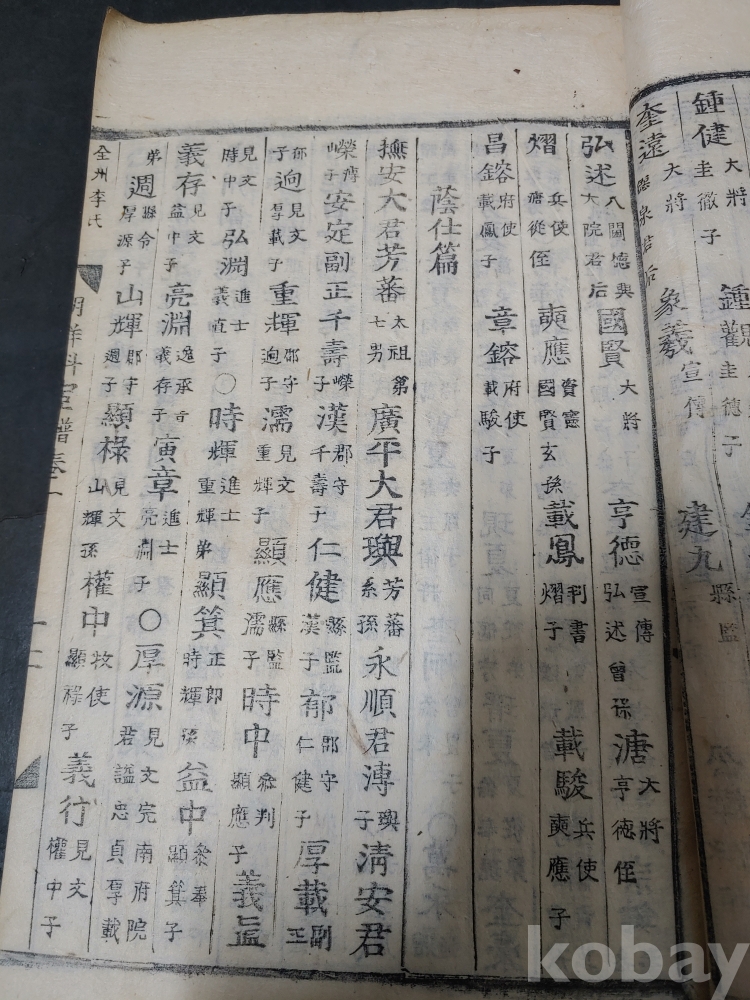 鍾健 大將 圭徹子 鍾觀 宣傳 圭德子
奎遠 大將 象羲 宣傳 建九 縣監
弘述 八閫 大院君后 德興 國賢 大將 亨德 宣傳 弘述曾孫 溏 大將 亨德侄
熠 兵使 溏從侄 奭應 資憲 國賢玄孫 載鳳 判書 熠子 載駿 兵使 奭應子
昌鎔 府使 載鳳子 章鎔 府使 載駿子
蔭仕篇
撫安大君芳蕃 太祖第七男 廣平大君璵 芳蕃系孫 永順君溥 璵子 淸安君
嶸 溥子 安定副正千壽 嶸子 漢 郡守 千壽子 仁健 縣監 漢子 郁 郡守 仁健子 厚載 副正
郁子 逈 見文 厚載子 重輝 郡守 逈子 濡 見文 重輝子 顯應 縣監 濡子 時中 參判 顯應子 義益
見文 時中子 弘淵 進士 義直子 ○ 時輝 進士 重輝弟 顯箕 正郎 時輝孫 益中 參奉 顯箕子
義存 見文 益中子 亮淵 義存子 寅章 進士 亮淵子 ○ 厚源 見文 完南府院君 謚忠貞 厚載
弟 週 縣令 厚源子 山輝 郡守 週子 顯祿 見文 山輝孫 權中 牧使 顯祿子 義行 見文 權中子
全州李氏
kobay